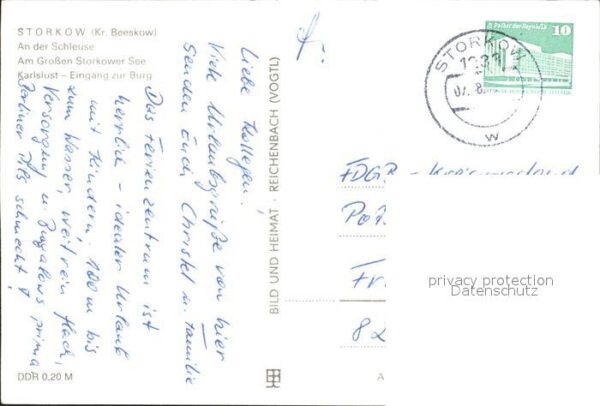 STORKOW (Kr. Beeskow)
An der Schleuse
Am Großen Storkower See
Karlslust – Eingang zur Burg
Liebe Kollegen!
Viele Urlaubsgrüße von hier
senden Euch Christel u. Familie
Das Ferienzentrum ist
herrlich – idealer Urlaub
mit Kindern. 100 m bis
zum Wasser, weit rein flach,
Versorgung u. Bungalows prima
Berliner Pils schmeckt!
DDR 0,20 M
BILD UND HEIMAT · REICHENBACH (VOGTL)
A
STORKOW
W
10
FDGB
Fr.
82
privacy protection
Datenschutz